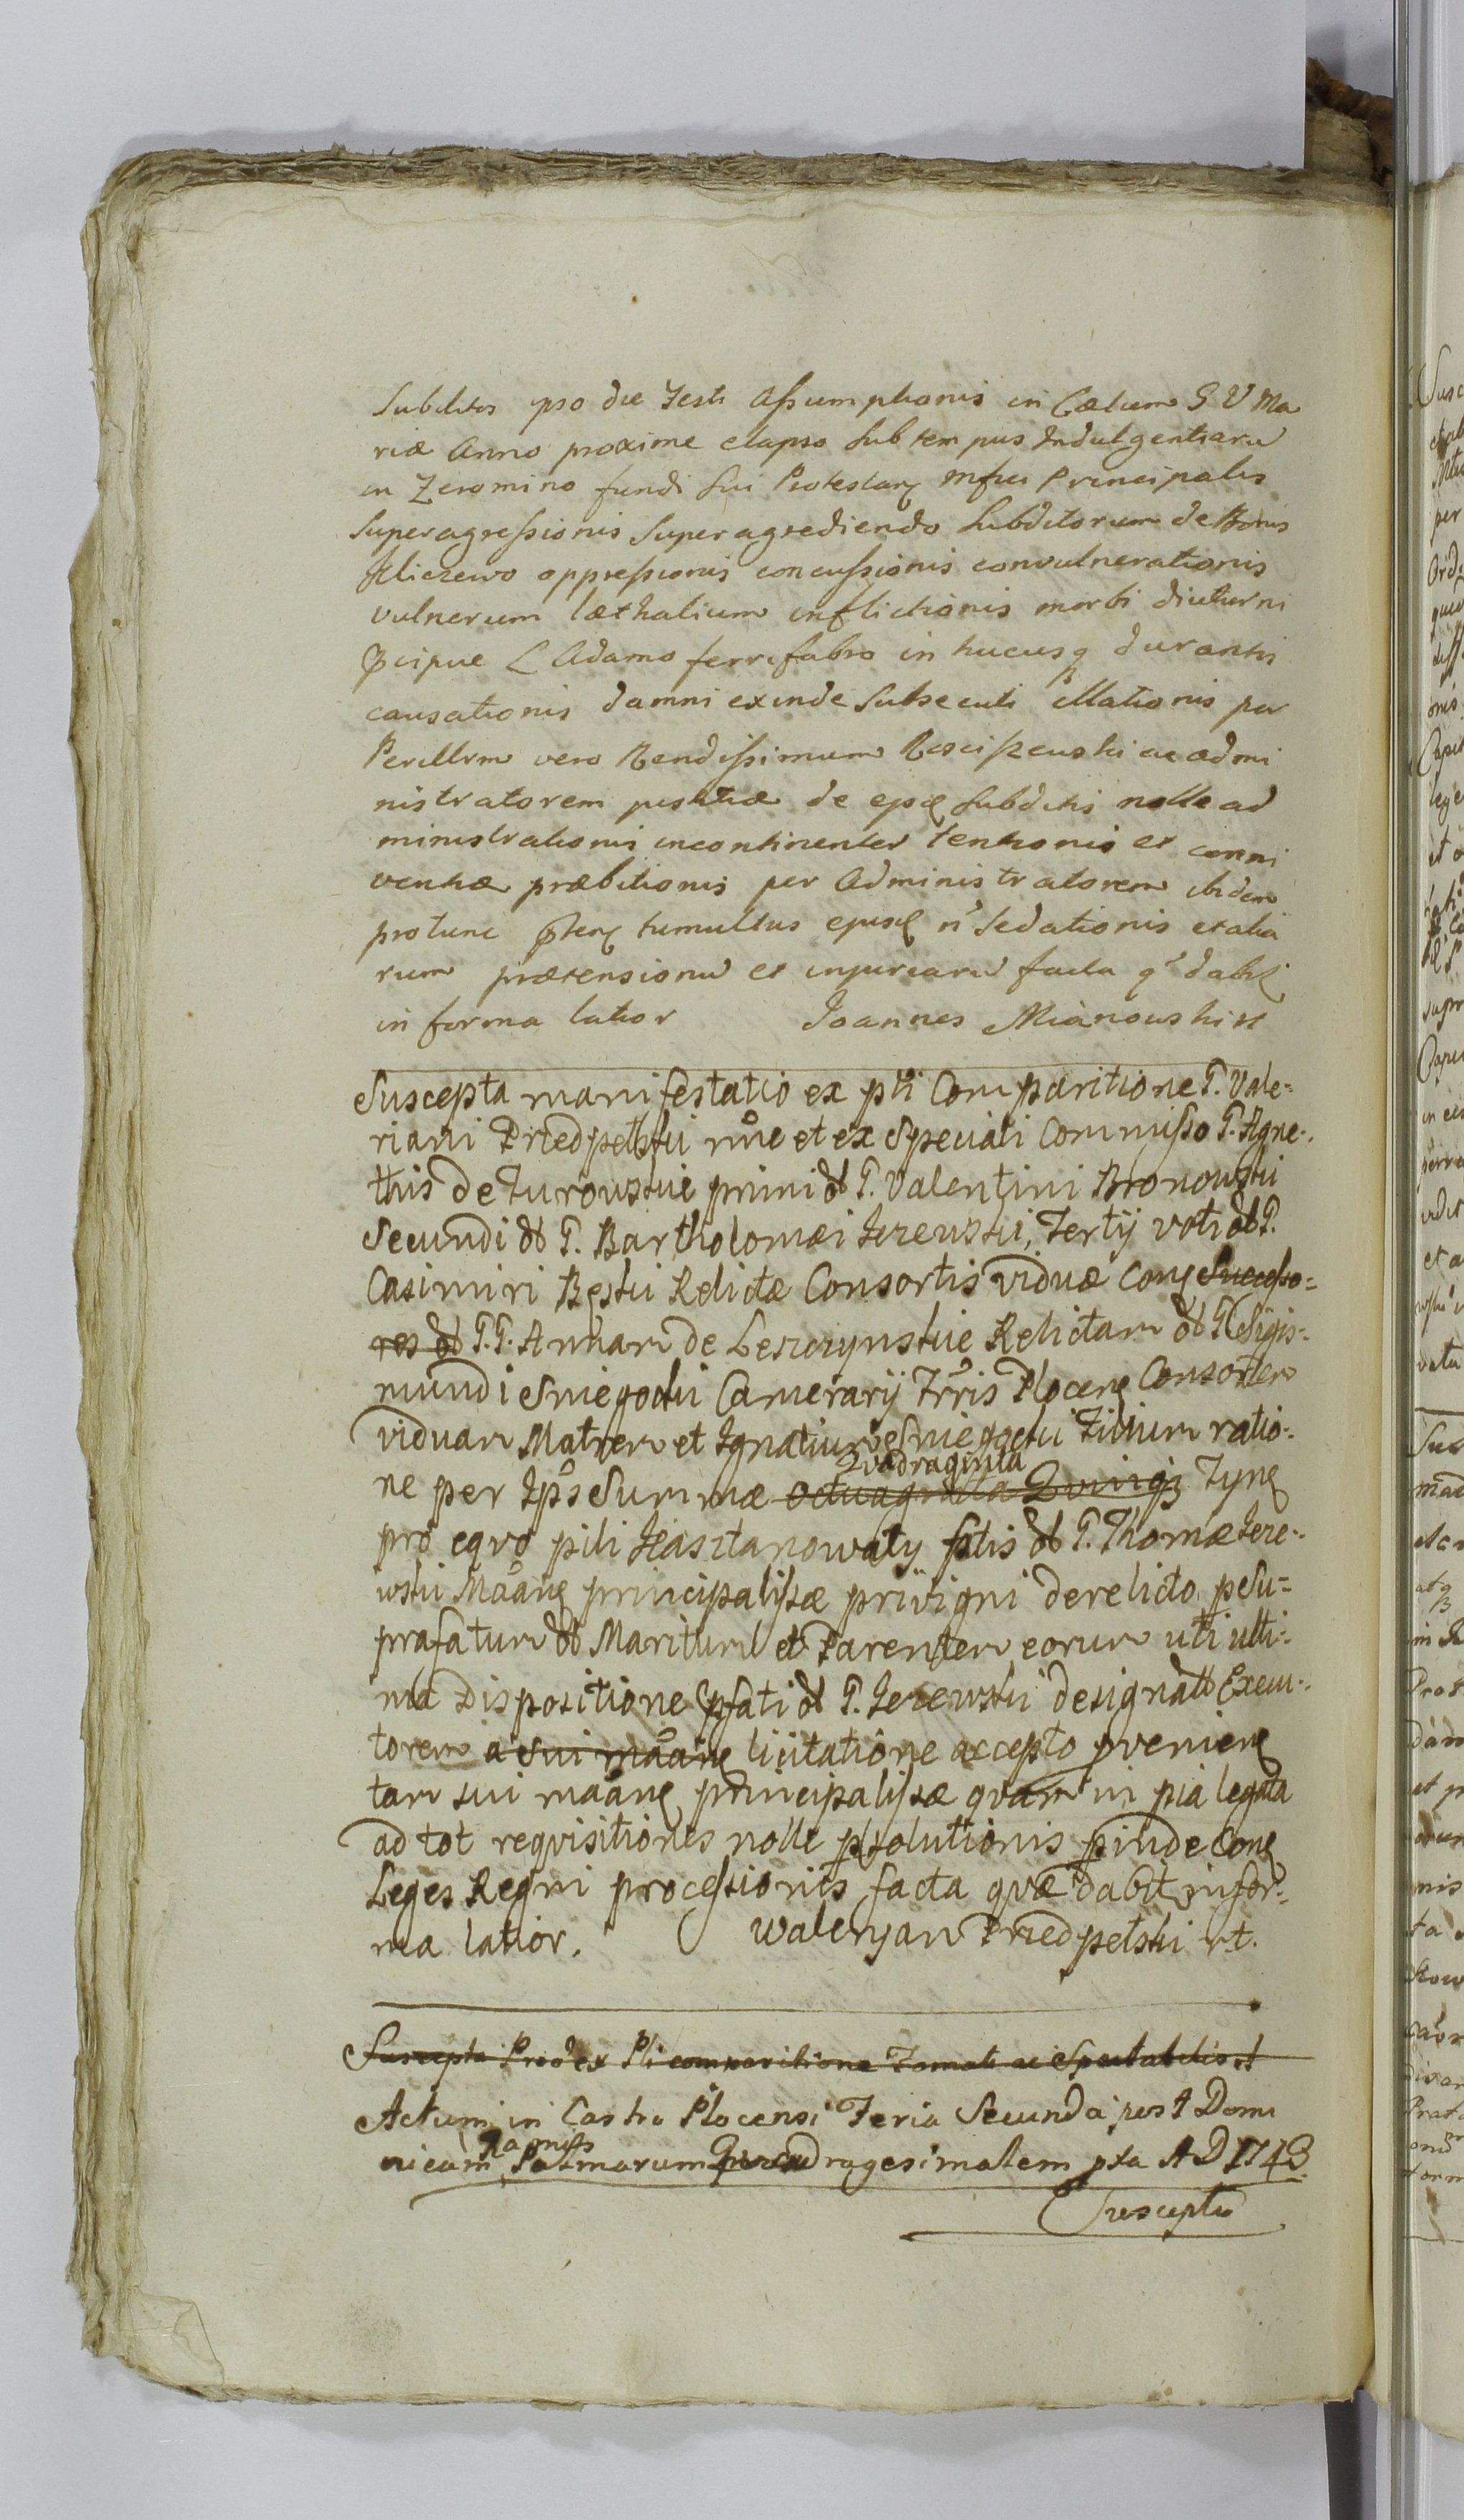 Subditos ipso die Festi Assumptionis in Cælum S V Ma
riæ Anno proxime elapso sub tempus Indulgentiaru
in Zeromino fundi sui Protestan mfus Principalis
superagressionis superagrediendo subditorum de Bonis
Kliczewo oppressionis concussionis convulnerationis
vulnerum læthalium inflictionis morbi diuturni
pcipue L Adamo ferrifabro in hucusq durantis
causationis damni exinde subsecuti illationis per
Perillrm vero Rendissimum Rosciszewski ac admi
nistratorem justitiæ de ejsd subditis nolle ad
ministrationis incontinenter tentionis et conni
ventiæ præbitionis per Administratorem ibidem
protunc tumultus ejusd n sedationis et alia
rum prætensionu et injuriaru facta q dabit
in forma latior Joannes Mianowski
Suscepta manifestatio ex pli Comparitione G. Vale=
riani Przedpelski mne et ex speciali Commisso G. Agne=
this de Turowskie primi ol G. Valentini Bronowski
Secundi ol G. Bartholomæi Jezewski, Tertij voti ol G.
Casimiri Bęski Relictæ Consortis viduæ Con Successo=
res ol G.G. Annam de Leszczynskie Relictam ol G. Sigis=
mundi Sniegocki Camerarij Trris Plocen Consortem
viduam Matrem et Ignatium Sniegocki Filium ratio=
Qvadraginta
ne per Ips Summæ Octuaginta Qvinq Tyn
pro eqvo pili Kasztanowaty ol G. Thomæ Jeze=
wski Maan principalissæ privigni derelicto p Su=
prafatum ol Maritum et Parentem eorum uti ulti=
ma Dispositione pfati ol G. Jezewski designat Execu=
torem a sui maan licitatione accepto pvenien
tam sui maan principalissæ qvam in pia legata
ad tot reqvisitiones nolle psolutionis pinde Con
Leges Regni processionis facta qvæ dabit in for=
ma latior. Waleryan Przedpelski rt.
Suscepta Prod ex Pli comparitione Famati ac Spectabilis
Actum in Castro Plocensi Feria Secunda post Domi
Ramis
nicam Palmarum Quadragesimalem pxa A D 1743
Suscepta